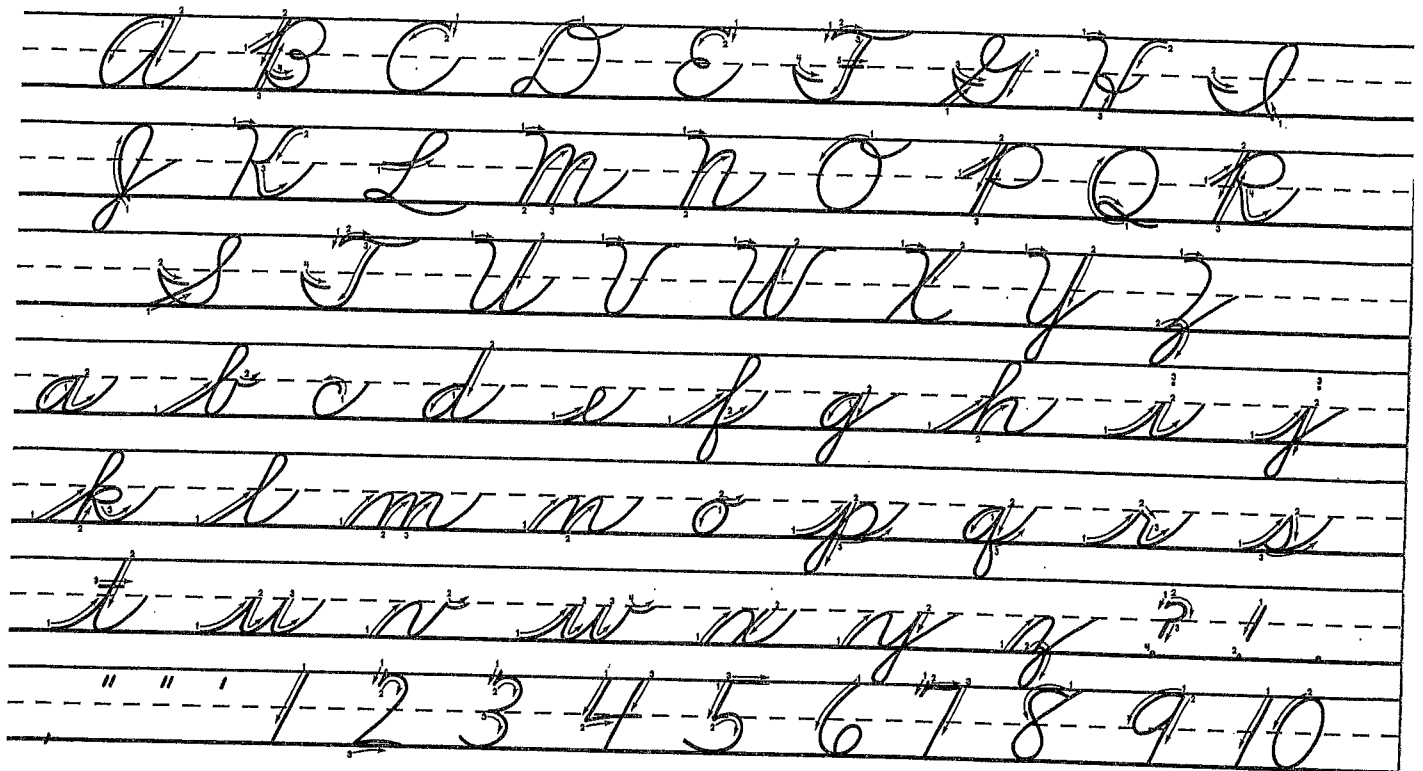 A B C D E F G H I
J K L M N O P Q R
S T U V W X Y Z
a b c d e f g h i j
k l m n o p q r s
t u v w x y z ? ! .
, " " ' 1 2 3 4 5 6 7 8 9 10